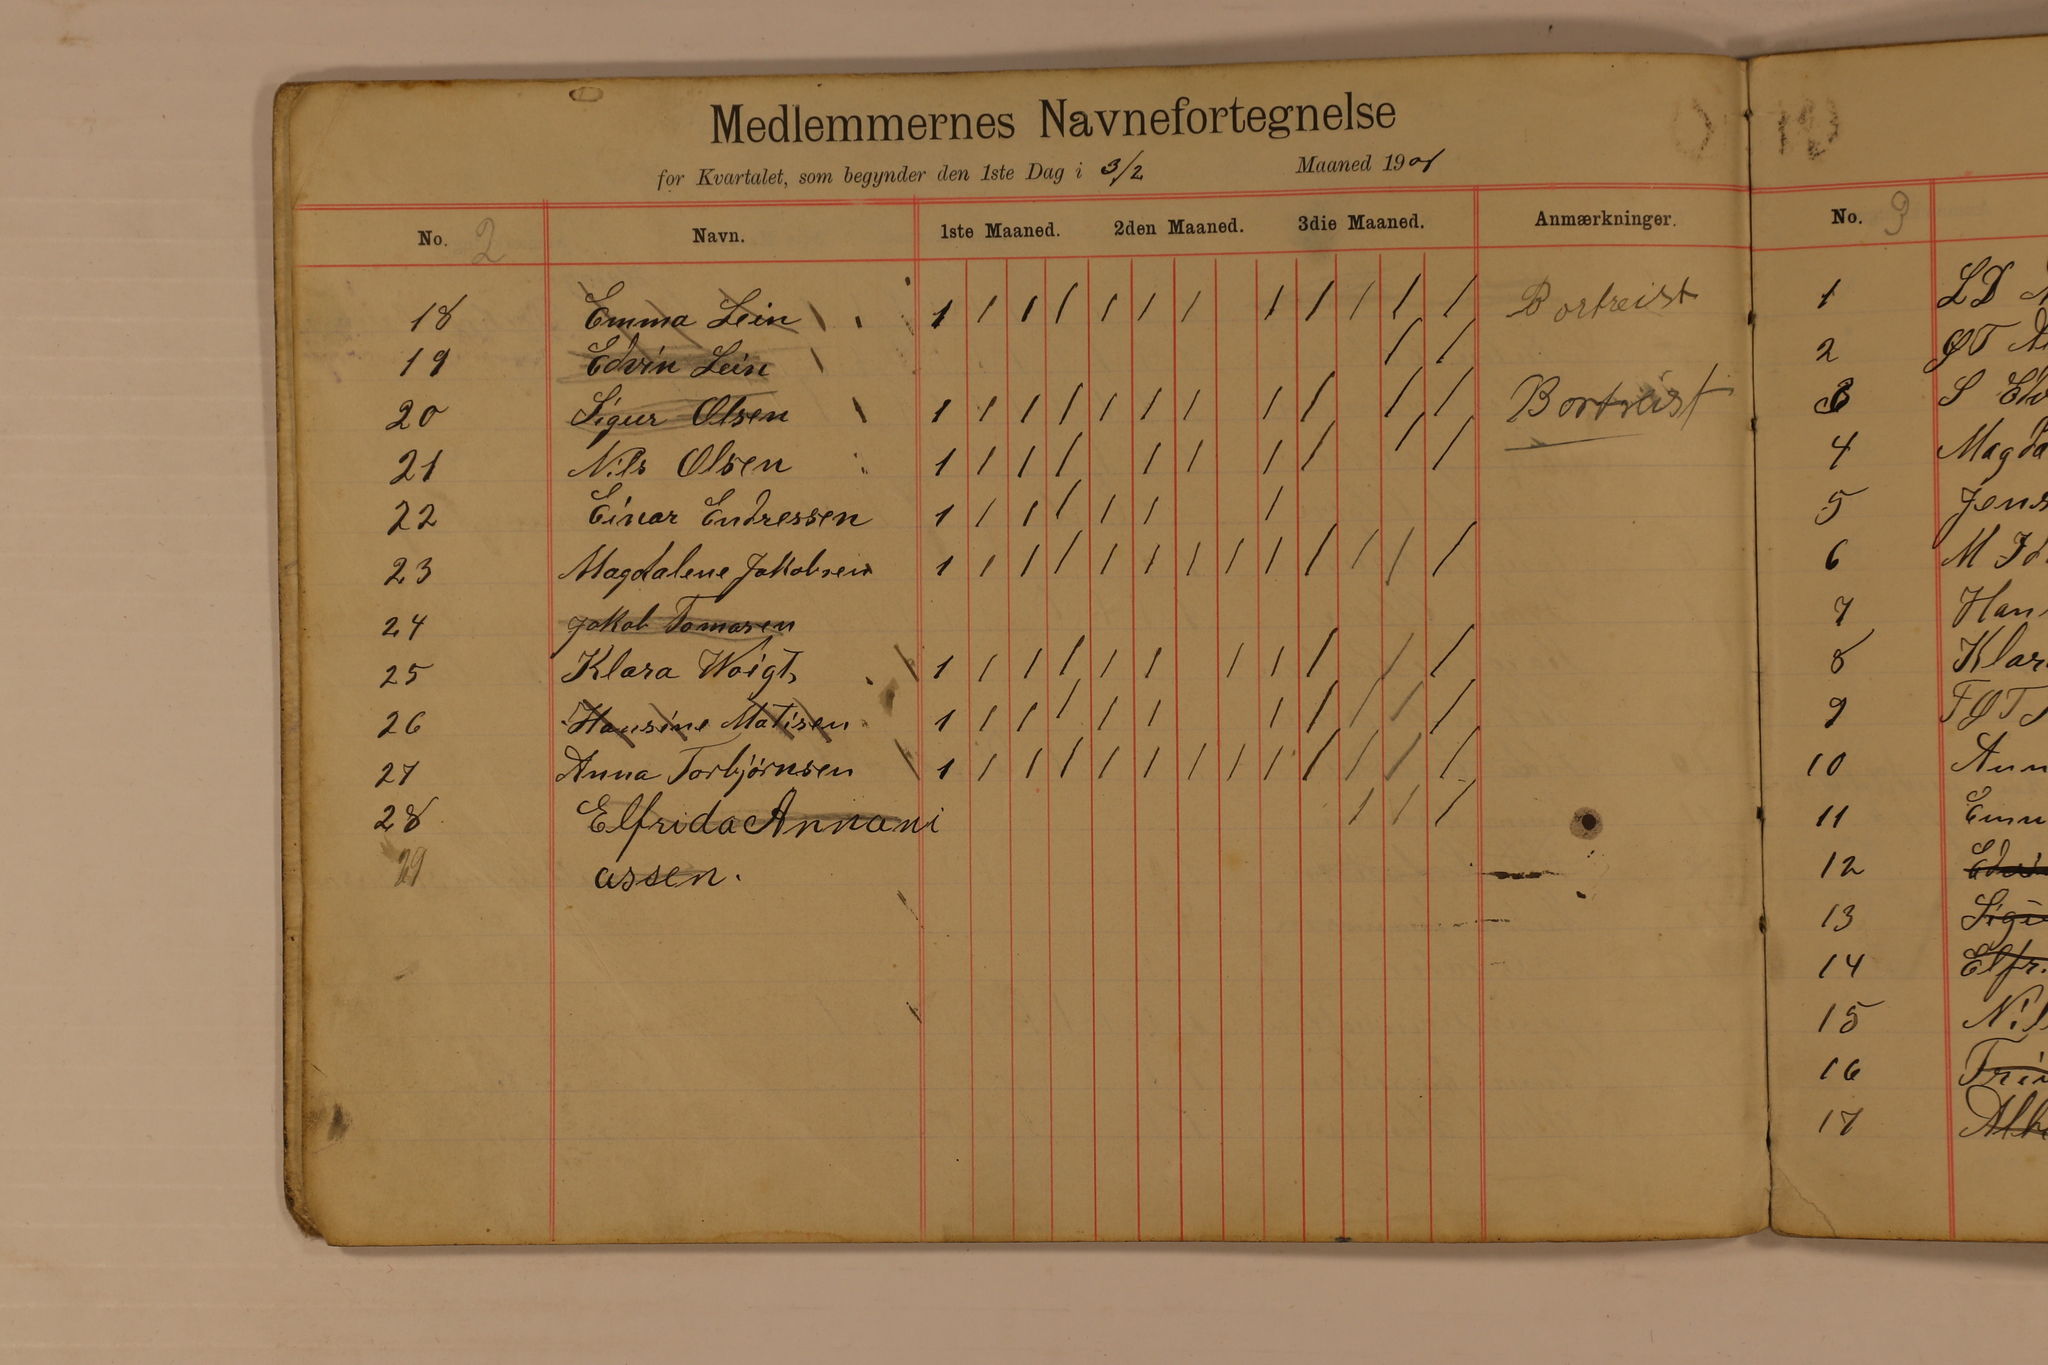 Medlemmernes Navnefortegnelse
for Kvartalet, som begynder den 1ste Dag i 3/2 Maaned 1901
No. 2 Navn. 1ste Maaned. 2den Maaned. 3die Maaned. Anmærkninger.
18 Emma Lein 1 / / / / / / / / / / / Bortreist
19 Edvin Lein / /
20 Sigur Olsen 1 / / / / / / / / / / Bortreist
21 Nils Olsen 1 / / / / / / / / /
22 Einar Endressen 1 / / / / / /
23 Magdalene Jakobsen 1 / / / / / / / / / / / /
24 Jakob Tomasen
25 Klara Woigt 1 / / / / / / / / / /
26 Hansine Matisen 1 / / / / / / / / / /
27 Anna Torbjørnsen 1 / / / / / / / / / / / /
28 Elfrida Annani / / /
29 assen.
No. 3
1 LD
2 ØT
3 S
4 Magda
5 Jens
6 M
7 Han
8 Klar
9 FØT
10 Ann
11 Emm
12 Edvi
13 Sigu
14 Elfr
15 Nil
16 Tri
17 Alb